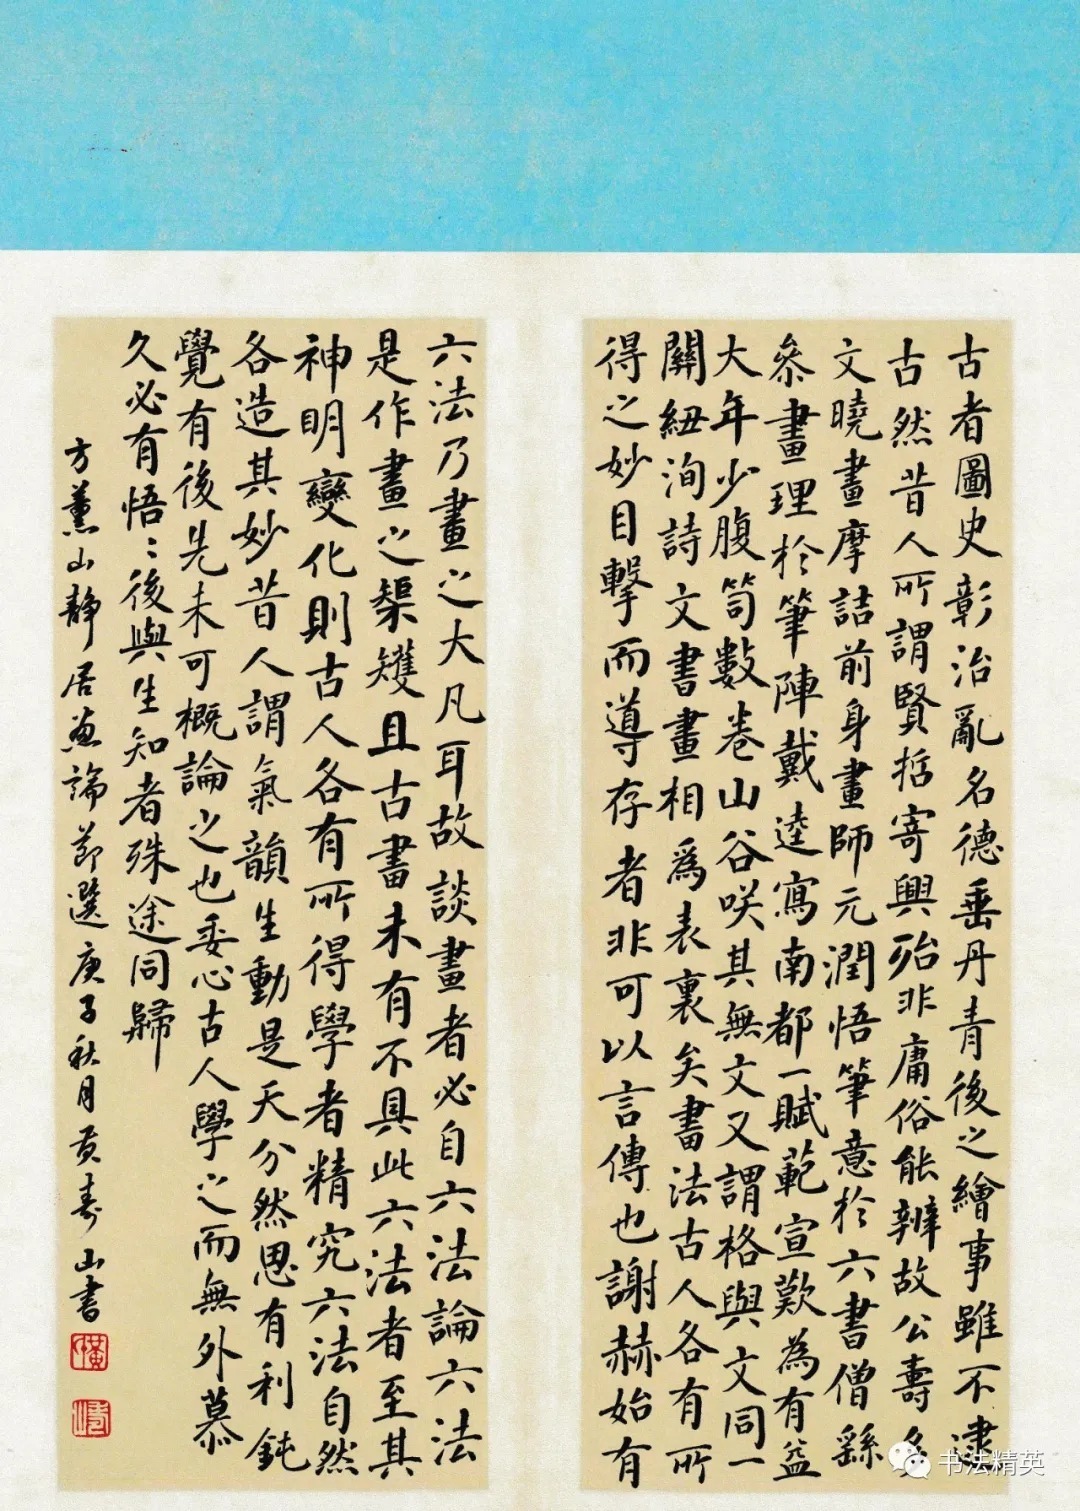 古者圖史彰治亂名德垂丹青後之繪事雖不逮
古然昔人所謂賢哲寄興殆非庸俗能辨故公壽多
文曉畫摩詰前身畫師元潤悟筆意於六書僧繇
叅畫理於筆陣戴逵寫南都一賦范宣歎為有益
大年少腹笥數卷山谷咲其無文又謂格與文同一
關紐洵詩文書畫相為表裏矣書法古人各有所
得之妙目擊而導存者非可以言傳也謝赫始有
六法乃畫之大凡耳故談畫者必自六法論六法
是作畫之槼矱且古畫未有不具此六法者至其
神明變化則古人各有所得學者精究六法自然
各造其妙昔人謂氣韻生動是天分然思有利鈍
覺有後先未可概論之也委心古人學之而無外慕
久必有悟〻後與生知者殊途同歸
方薰山靜居畫論節選庚子秋月黃壽山書
书法精英